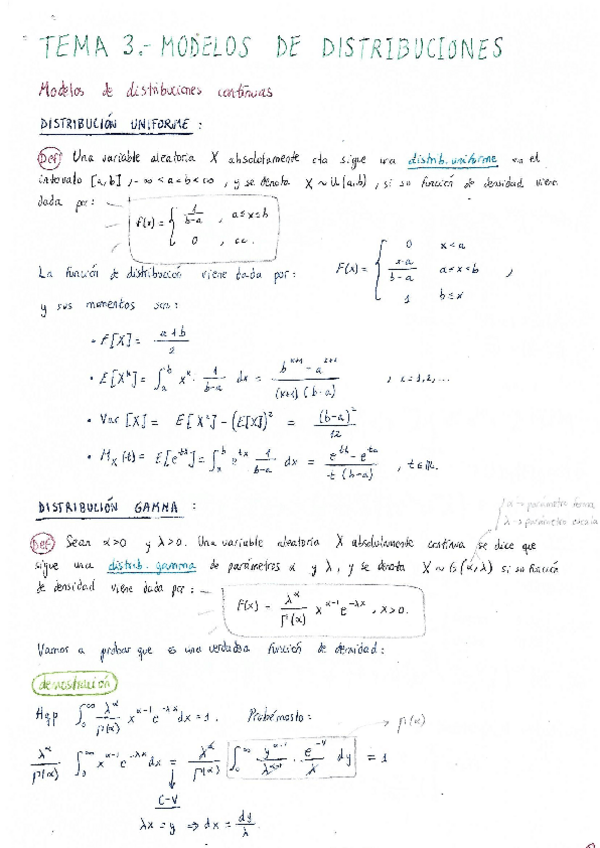 TEMA 3.- MODELOS DE DISTRIBUCIONES
Modelos de distribuciones continuas
DISTRIBUCIÓN UNIFORME :
Def Una variable aleatoria X absolutamente cta sigue una distrib. uniforme en el
intervalo [a,b] , -∞ < a < b < ∞ , y se denota X ~ U(a,b) , si su función de densidad viene
dada por : f(x) = { 1/(b-a) , a ≤ x ≤ b
0 , cc.
La función de distribución viene dada por : F(x) = { 0 x < a
(x-a)/(b-a) a ≤ x ≤ b ,
1 b ≤ x
y sus momentos son :
• E[X] = (a+b)/2
• E[X^k] = ∫_a^b x^k · 1/(b-a) dx = (b^(k+1) - a^(k+1))/((k+1)(b-a)) , k = 1,2, ...
• Var [X] = E[X²] - (E[X])² = (b-a)²/12
• M_X(t) = E[e^(tX)] = ∫_a^b e^(tx) 1/(b-a) dx = (e^(tb) - e^(ta))/(t(b-a)) , t ∈ ℝ.
DISTRIBUCIÓN GAMMA :
α → parámetro forma
λ → parámetro escala
Def Sean α>0 y λ>0. Una variable aleatoria X absolutamente continua se dice que
sigue una distrib. gamma de parámetros α y λ, y se denota X ~ G(α,λ) si su función
de densidad viene dada por : f(x) = λ^α/Γ(α) x^(α-1) e^(-λx) , x>0.
Vamos a probar que es una verdadera función de densidad :
demostración
Hqp ∫_0^∞ λ^α/Γ(α) x^(α-1) e^(-λx) dx = 1. Probémoslo : → Γ(α)
λ^α/Γ(α) ∫_0^∞ x^(α-1) e^(-λx) dx = λ^α/Γ(α) ∫_0^∞ y^(α-1)/λ^(α-1) · e^(-y)/λ dy = 1
C-V
λx = y ⇒ dx = dy/λ